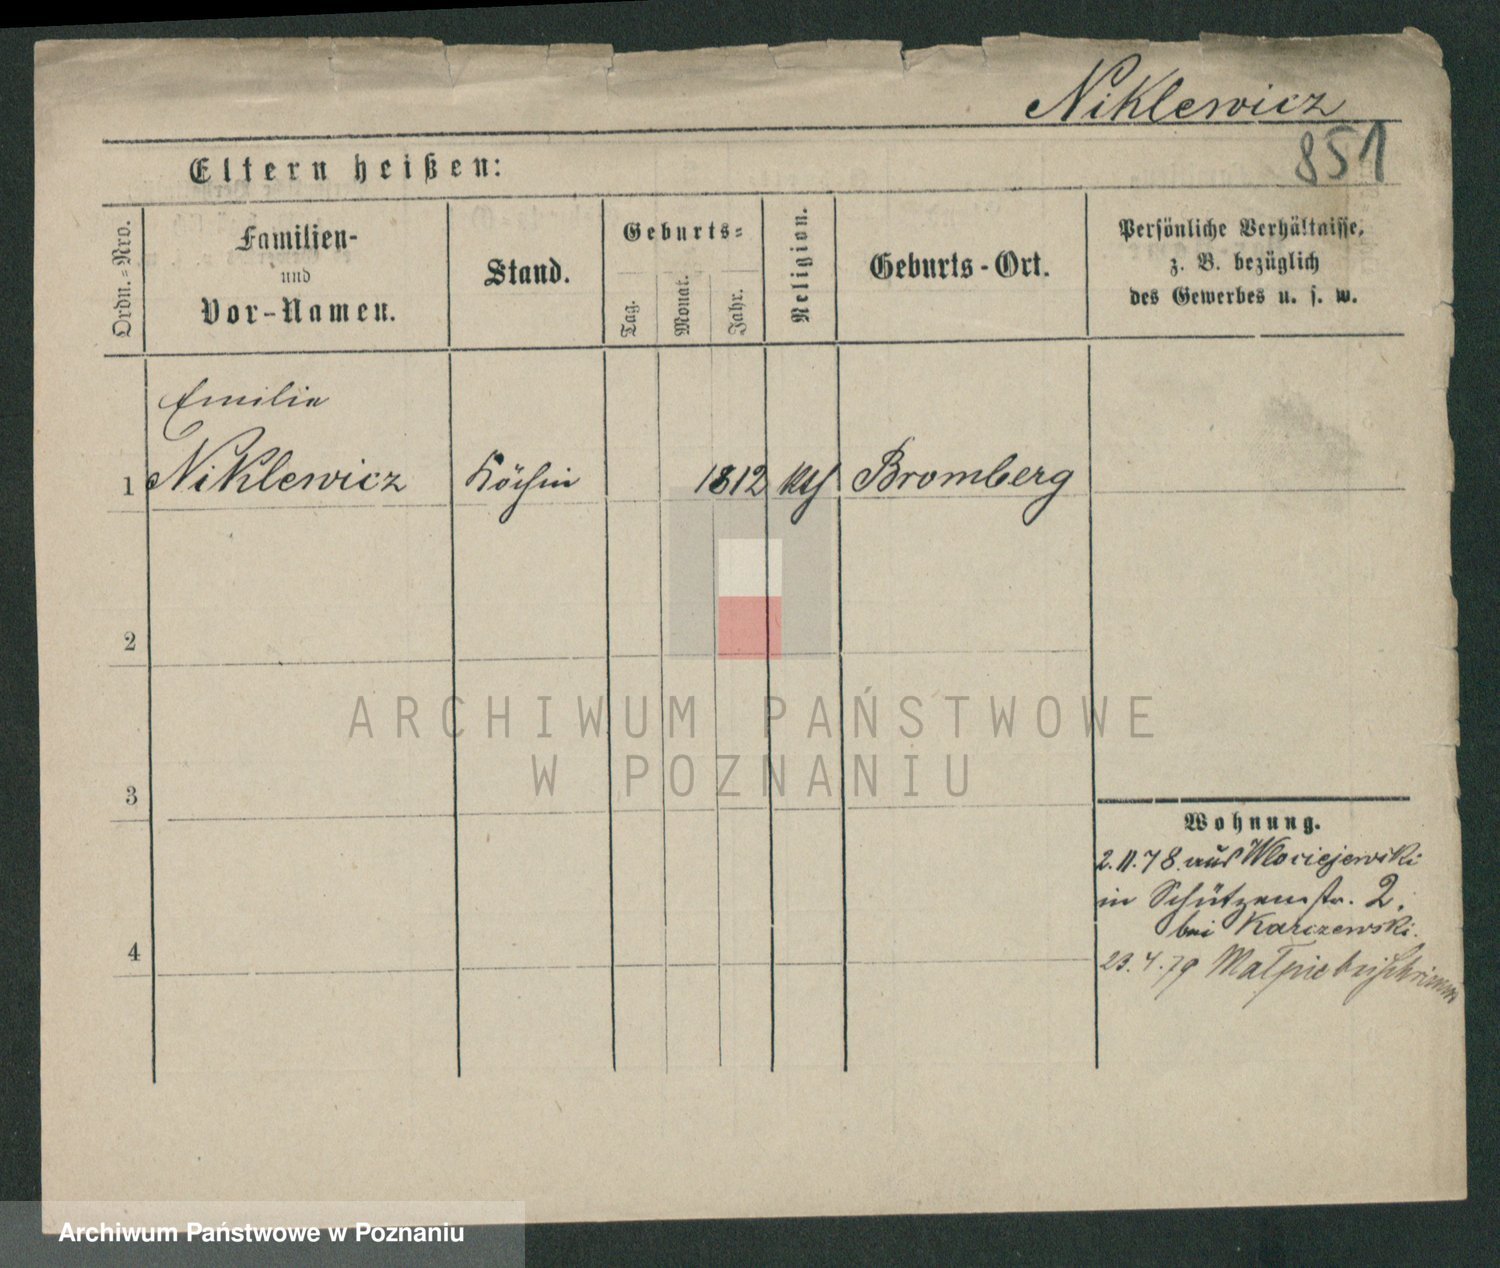 Niklewicz
851
Eltern heißen:
Ordn.=Nro.
Familien-
und
Vor-Namen.
Stand.
Geburts=
Tag.
Monat.
Jahr.
Religion.
Geburts-Ort.
Persönliche Verhältnisse,
z. B. bezüglich
des Gewerbes u. s. w.
Emilie
1 Niklewicz Köchin 1812 kth Bromberg
2
3
4
Wohnung.
2.11.78. aus Wlociejewski
in Schützenstr. 2.
bei Karczewski.
23.4.79 Malpie bei Schrimm
ARCHIWUM PAŃSTWOWE
W POZNANIU
Archiwum Państwowe w Poznaniu